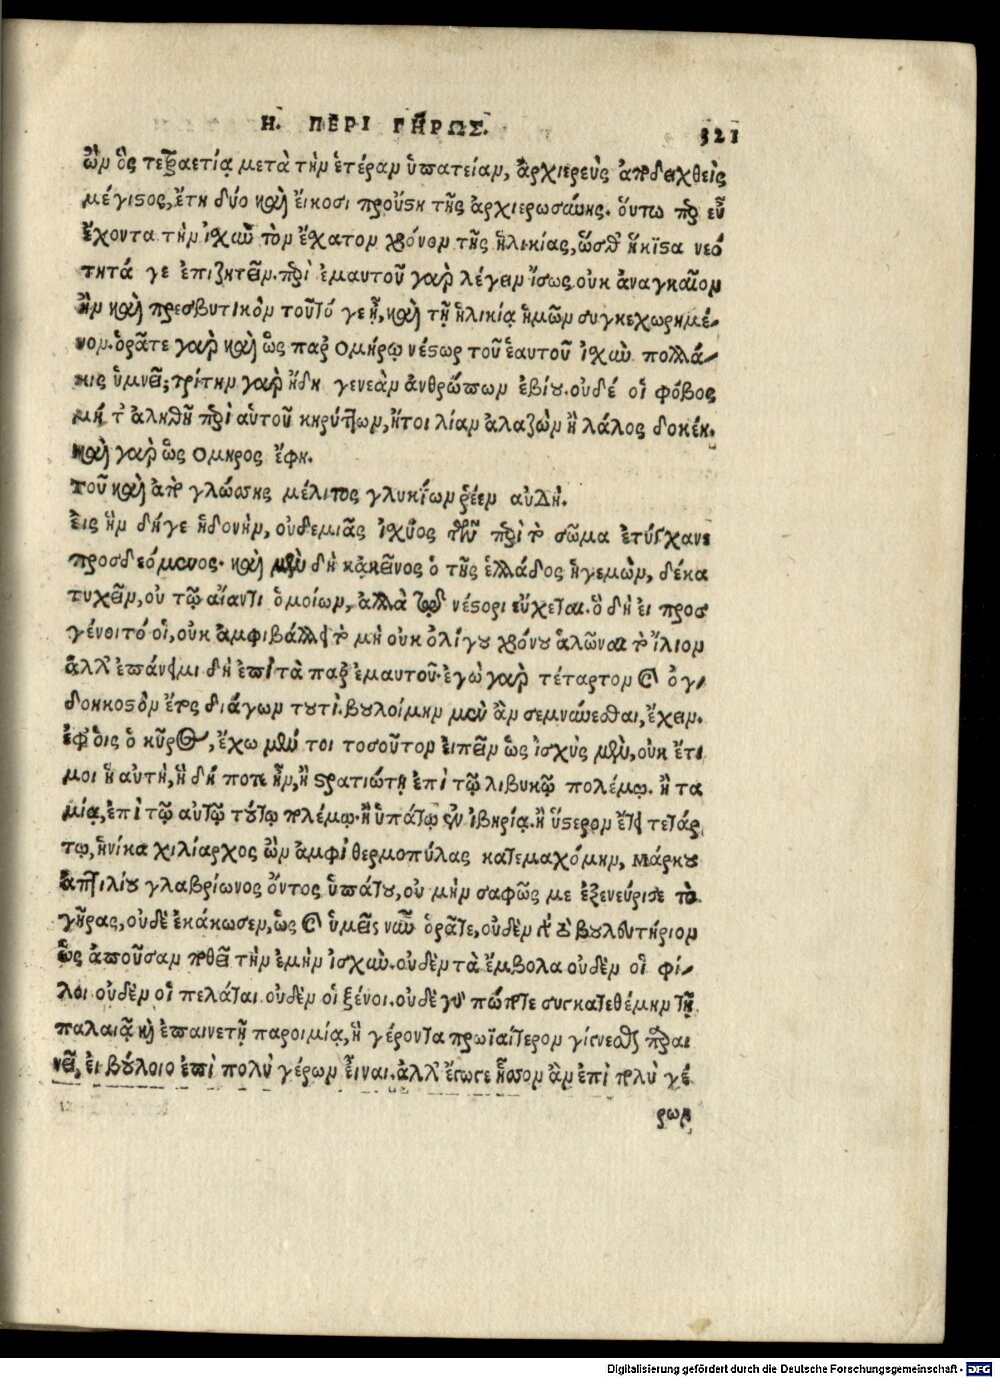 Η. ΠΕΡΙ ΓΗΡΩΣ. 321
ὢν ὃς τετραετίᾳ μετὰ τὴν ἑτέραν ὑπατείαν, ἀρχιερεὺς ἀποδειχθεὶς
μέγιστος, ἔτη δύο καὶ εἴκοσι προὔστη τῆς ἀρχιερωσύνης. οὕτω περ εὖ
ἔχοντα τὴν ἰσχὺν τὸν ἔσχατον χρόνον τῆς ἡλικίας, ὥσθ' ἥκιστα νεό
τητά γε ἐπιζητεῖν. περὶ ἐμαυτοῦ γὰρ λέγειν ἴσως οὐκ ἀναγκαῖον
ἢν καὶ πρεσβυτικὸν τοῦτό γε ᾖ, καὶ τῇ ἡλικίᾳ ἡμῶν συγκεχωρημέ-
νον. ὁρᾶτε γὰρ καὶ ὡς παρ' Ὁμήρῳ νέστωρ τοῦ ἑαυτοῦ ἰσχὺν πολλά-
κις ὑμνεῖ; τρίτην γὰρ ἤδη γενεὰν ἀνθρώπων ἐβίου. οὐδέ οἱ φόβος
μὴ τ' ἀληθῆ περὶ αὑτοῦ κηρύττων, ἤτοι λίαν ἀλαζὼν ἢ λάλος δοκέῃ.
καὶ γὰρ ὡς Ὅμηρος ἔφη.
τοῦ καὶ ἀπὸ γλώσσης μέλιτος γλυκίων ῥέεν αὐδή.
εἰς ἣν δήγε ἡδονὴν, οὐδεμιᾶς ἰσχύος τῶν περὶ τὸ σῶμα ἐτύγχανε
προσδεόμενος. καὶ μὲν δὴ κἀκεῖνος ὁ τῆς ἑλλάδος ἡγεμὼν, δέκα
τυχεῖν, οὐ τῷ αἴαντι ὁμοίων, ἀλλὰ τῷ νέστορι εὔχεται. ὃ δὴ εἰ προσ
γένοιτό οἱ, οὐκ ἀμφιβάλλει τὸ μὴ οὐκ ὀλίγου χρόνου ἁλῶναι τὸ ἴλιον
ἀλλ' ἐπάνειμι δὴ ἐπὶ τὰ παρ' ἐμαυτοῦ. ἐγὼ γὰρ τέταρτον καὶ ὀγ-
δοηκοστὸν ἔτος διάγων τουτί. βουλοίμην μὲν ἂν σεμνύνεσθαι, ἔχειν.
ἐφ' οἷς ὁ κῦρος, ἔχω μέν τοι τοσοῦτον εἰπεῖν ὡς ἰσχὺς μὲν, οὐκ ἔτι
μοι ἡ αὐτὴ, ἣ δή ποτε ἦν, ἢ στρατιώτῃ ἐπὶ τῷ λιβυκῷ πολέμῳ. ἢ τα
μίᾳ, ἐπὶ τῷ αὐτῷ τούτῳ πολέμῳ. ἢ ὑπάτῳ ἐν ἰβηρίᾳ. ἢ ὕστερον ἔτει τετάρ
τῳ, ἡνίκα χιλίαρχος ὢν ἀμφὶ θερμοπύλας κατεμαχόμην, Μάρκου
ἀττιλίου γλαβρίωνος ὄντος ὑπάτου, οὐ μὴν σαφῶς με ἐξενεύρισε τὸ
γῆρας, οὐδὲ ἐκάκωσεν, ὡς καὶ ὑμεῖς νῦν ὁρᾶτε, οὐδὲν βουλευτήριον
ὡς ἀποῦσαν ποθεῖ τὴν ἐμὴν ἰσχὺν. οὐδὲν τὰ ἔμβολα οὐδὲν οἱ φί-
λοι οὐδὲν οἱ πελάται οὐδὲν οἱ ξένοι. οὐδὲ γὰρ πώποτε συγκατεθέμην τῇ
παλαιᾷ καὶ ἐπαινετῇ παροιμίᾳ, ἣ γέροντα πρωϊαίτερον γίγνεσθαι παραι
νεῖ, εἰ βούλοιο ἐπὶ πολὺ γέρων εἶναι. ἀλλ' ἔγωγε ἧσσον ἂν ἐπὶ πολὺ γέ
ρων
Digitalisierung gefördert durch die Deutsche Forschungsgemeinschaft - DFG